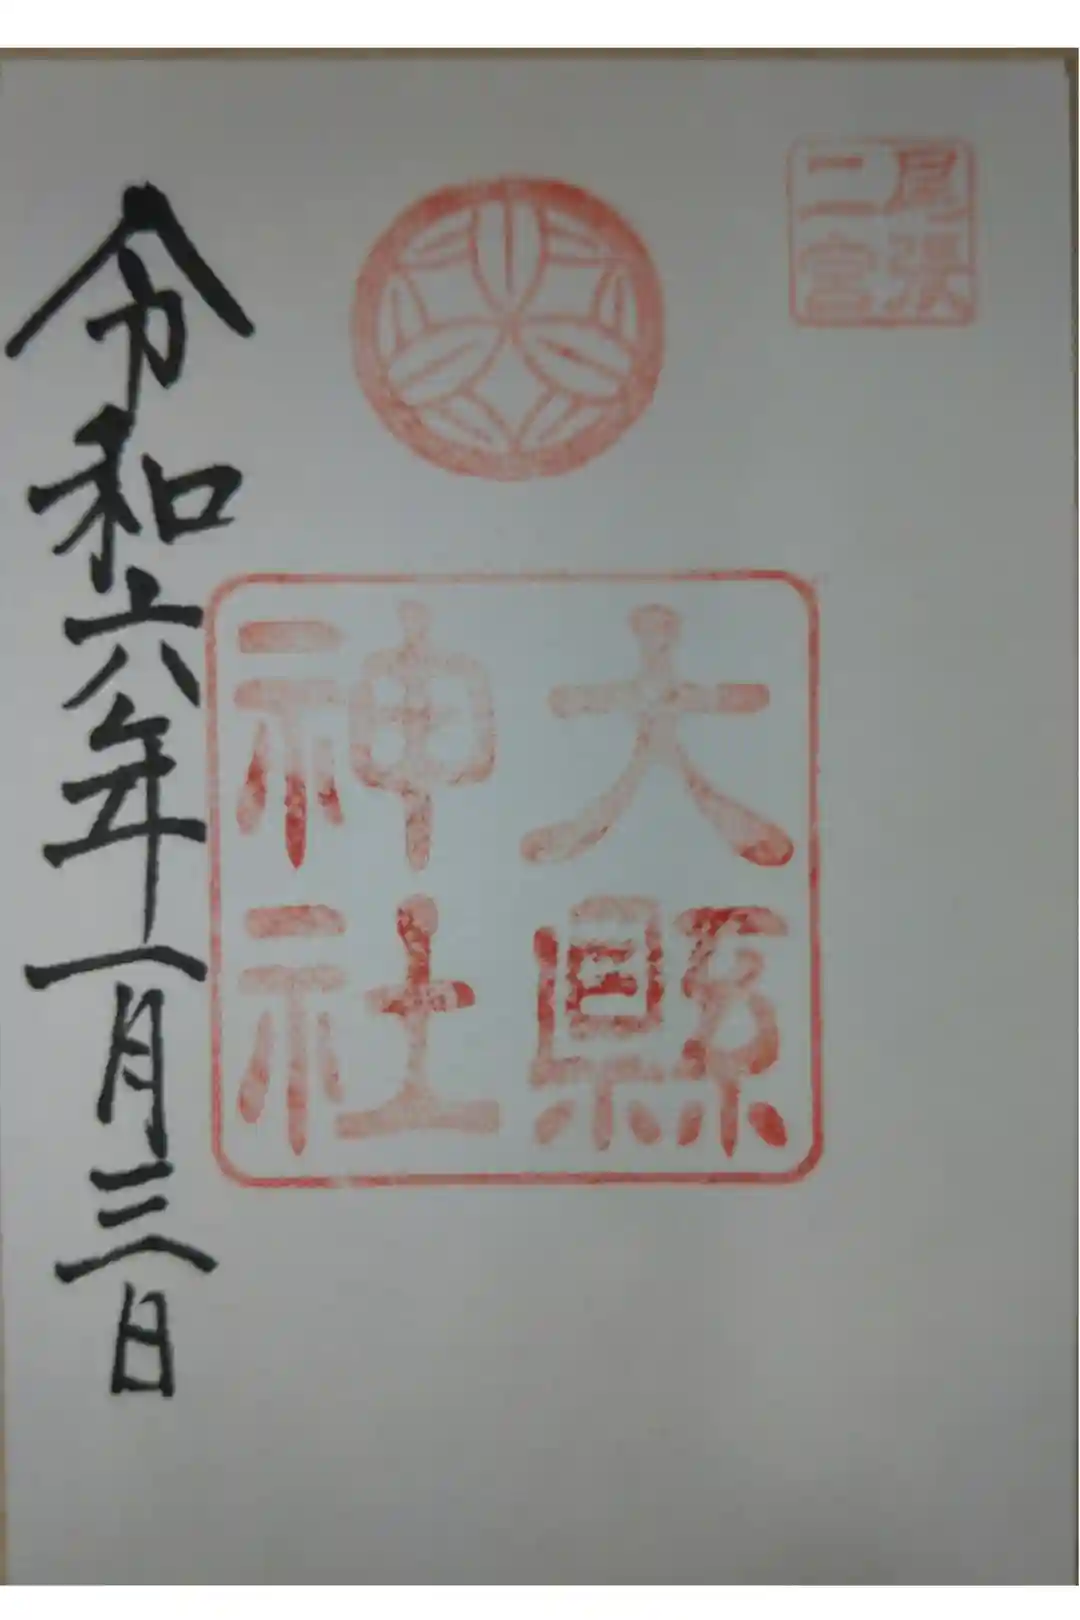 尾張
二宮
大縣
神社
令和六年一月三日